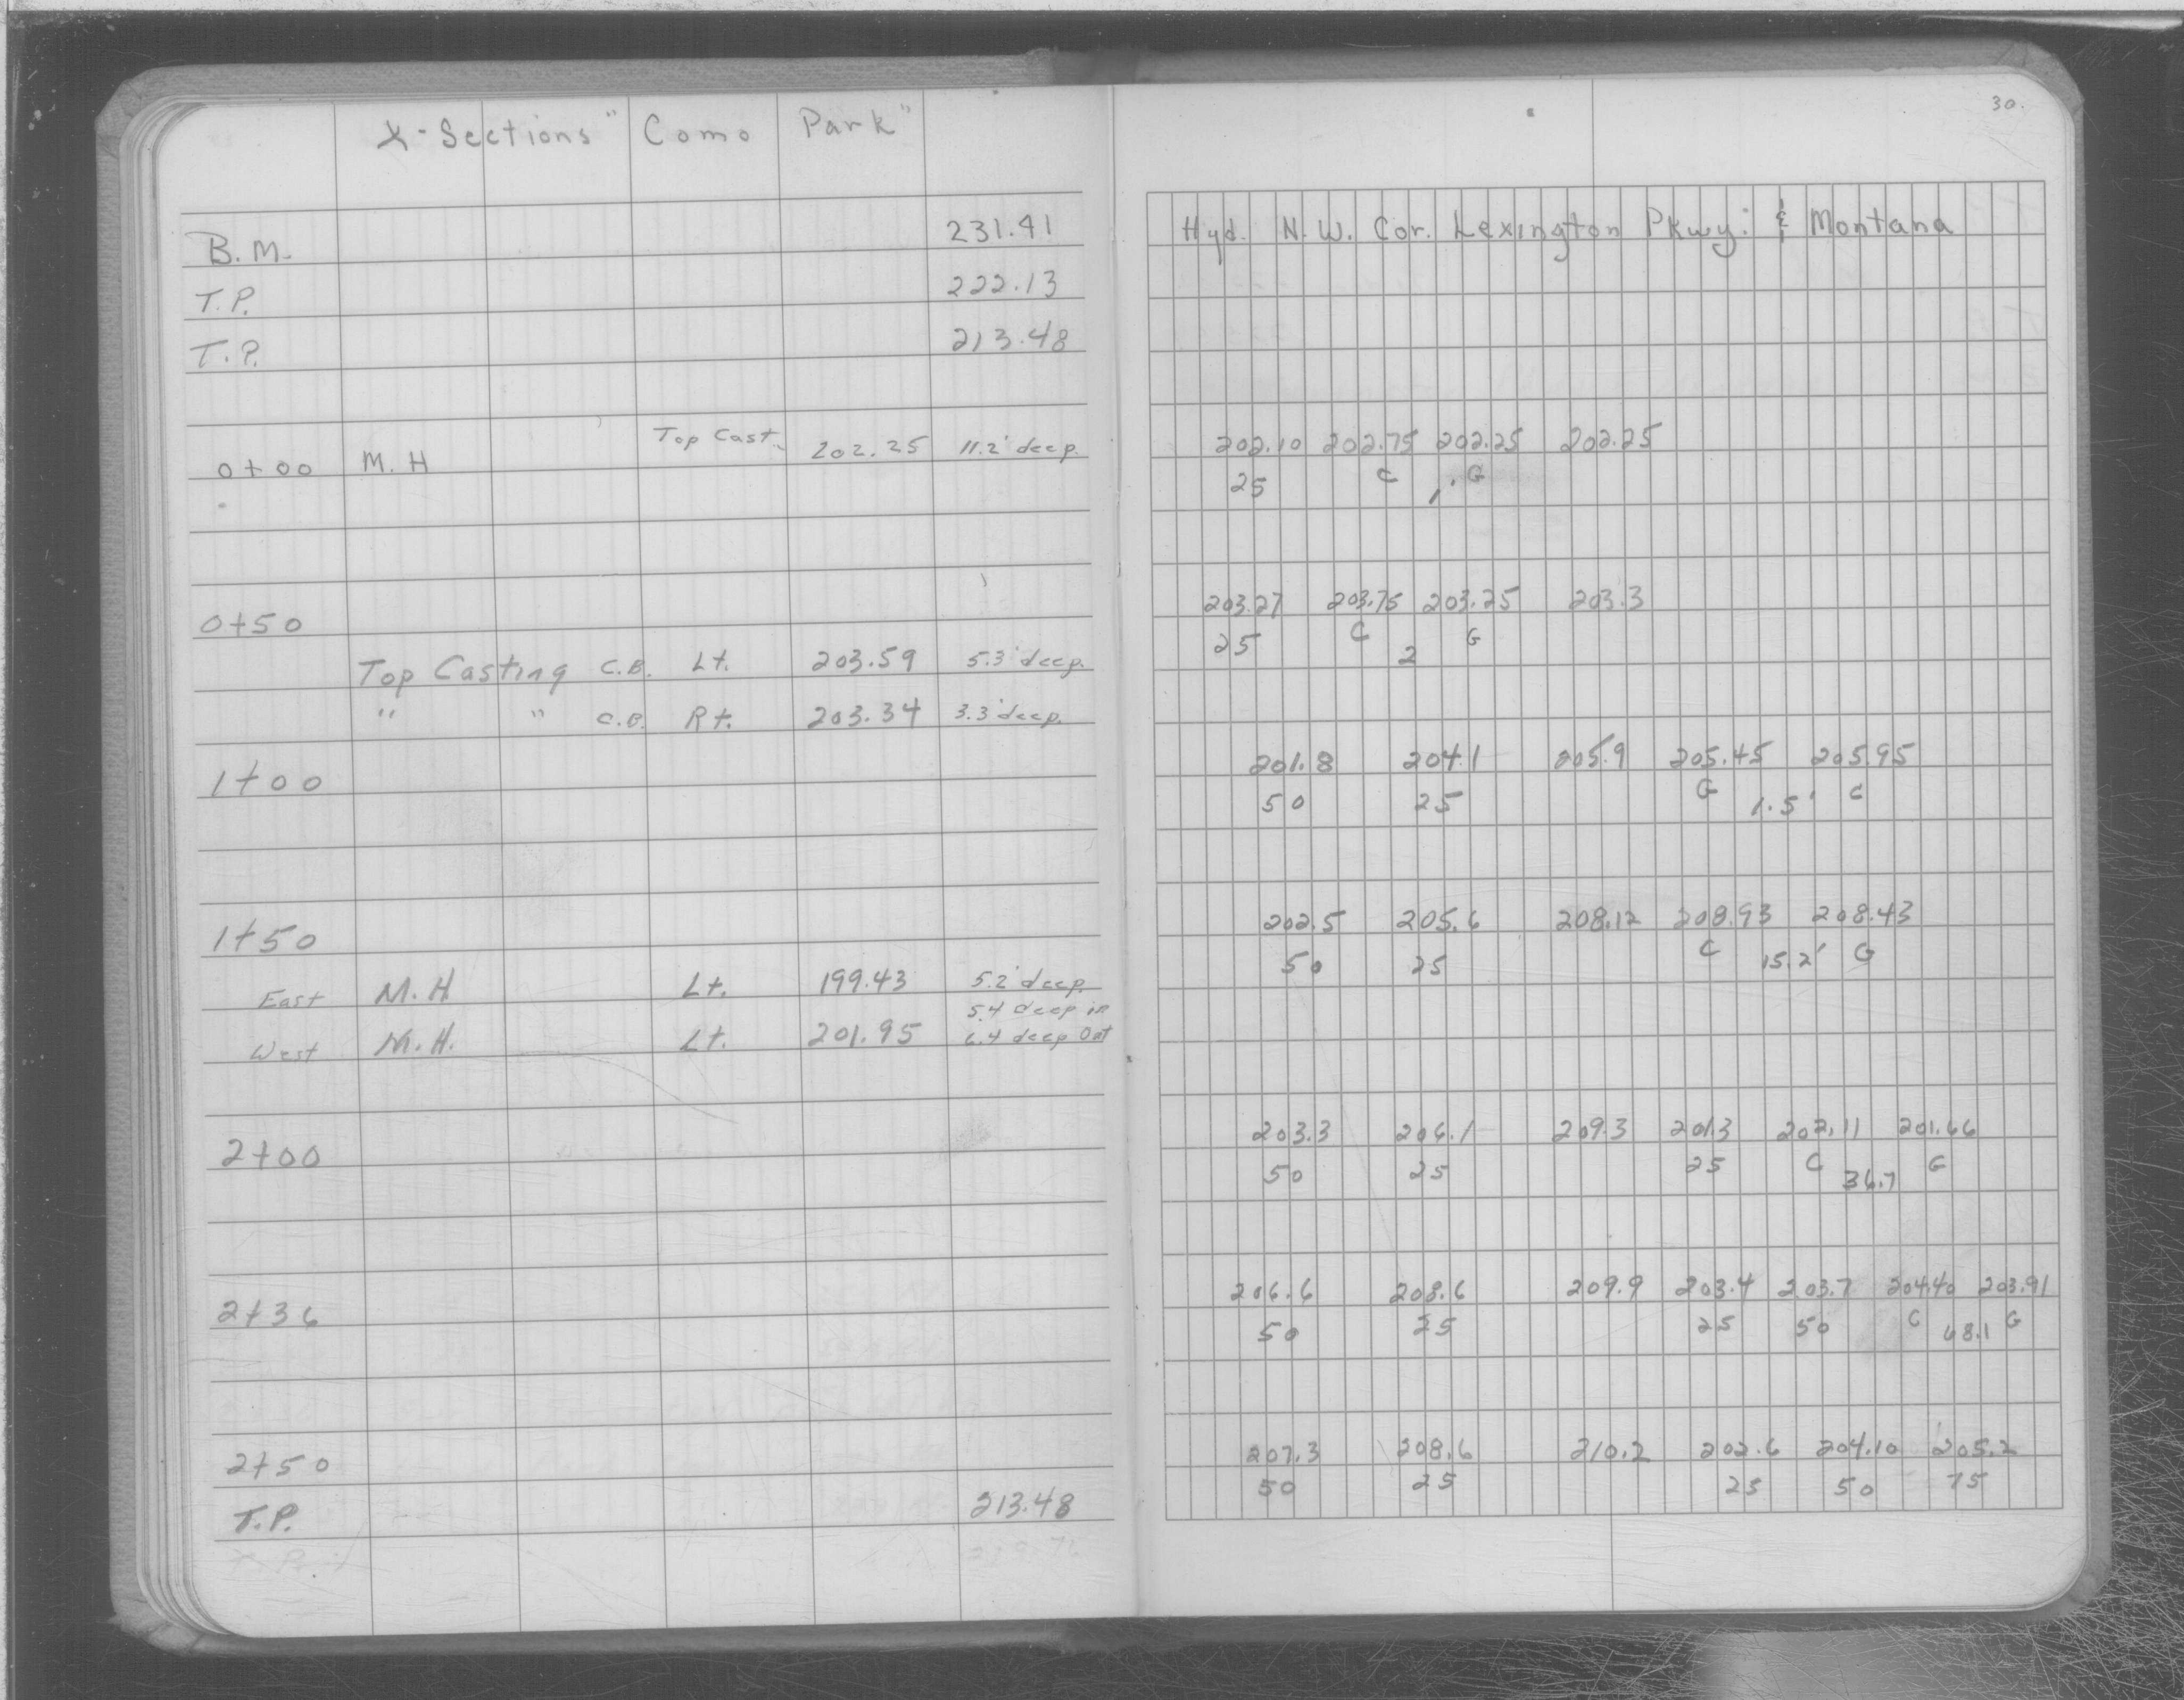 X-Sections "Como Park"
B.M. 231.41
T.P. 222.13
T.P. 213.48
0+00 M.H Top Cast. 202.25 11.2' deep.
0+50
Top Casting C.B. Lt. 203.59 5.3' deep.
" " C.B. Rt. 203.34 3.3' deep.
1+00
1+50
East M.H Lt. 199.43 5.2' deep.
5.4 deep in
West M.H. Lt. 201.95 6.4 deep Out
2+00
2+36
2+50
T.P. 213.48
30.
Hyd. N.W. Cor. Lexington Pkwy. & Montana
202.10 202.75 202.25 202.25
25 C 1' G
203.27 203.75 203.25 203.3
25 C 2 G
201.8 204.1 205.9 205.45 205.95
50 25 G 1.5' C
202.5 205.6 208.12 208.93 208.43
50 25 C 15.2' G
203.3 206.1 209.3 201.3 202.11 201.66
50 25 25 C 36.7 G
206.6 208.6 209.9 203.4 203.7 204.40 203.91
50 25 25 50 C 68.1 G
207.3 208.6 210.2 202.6 204.10 205.2
50 25 25 50 75